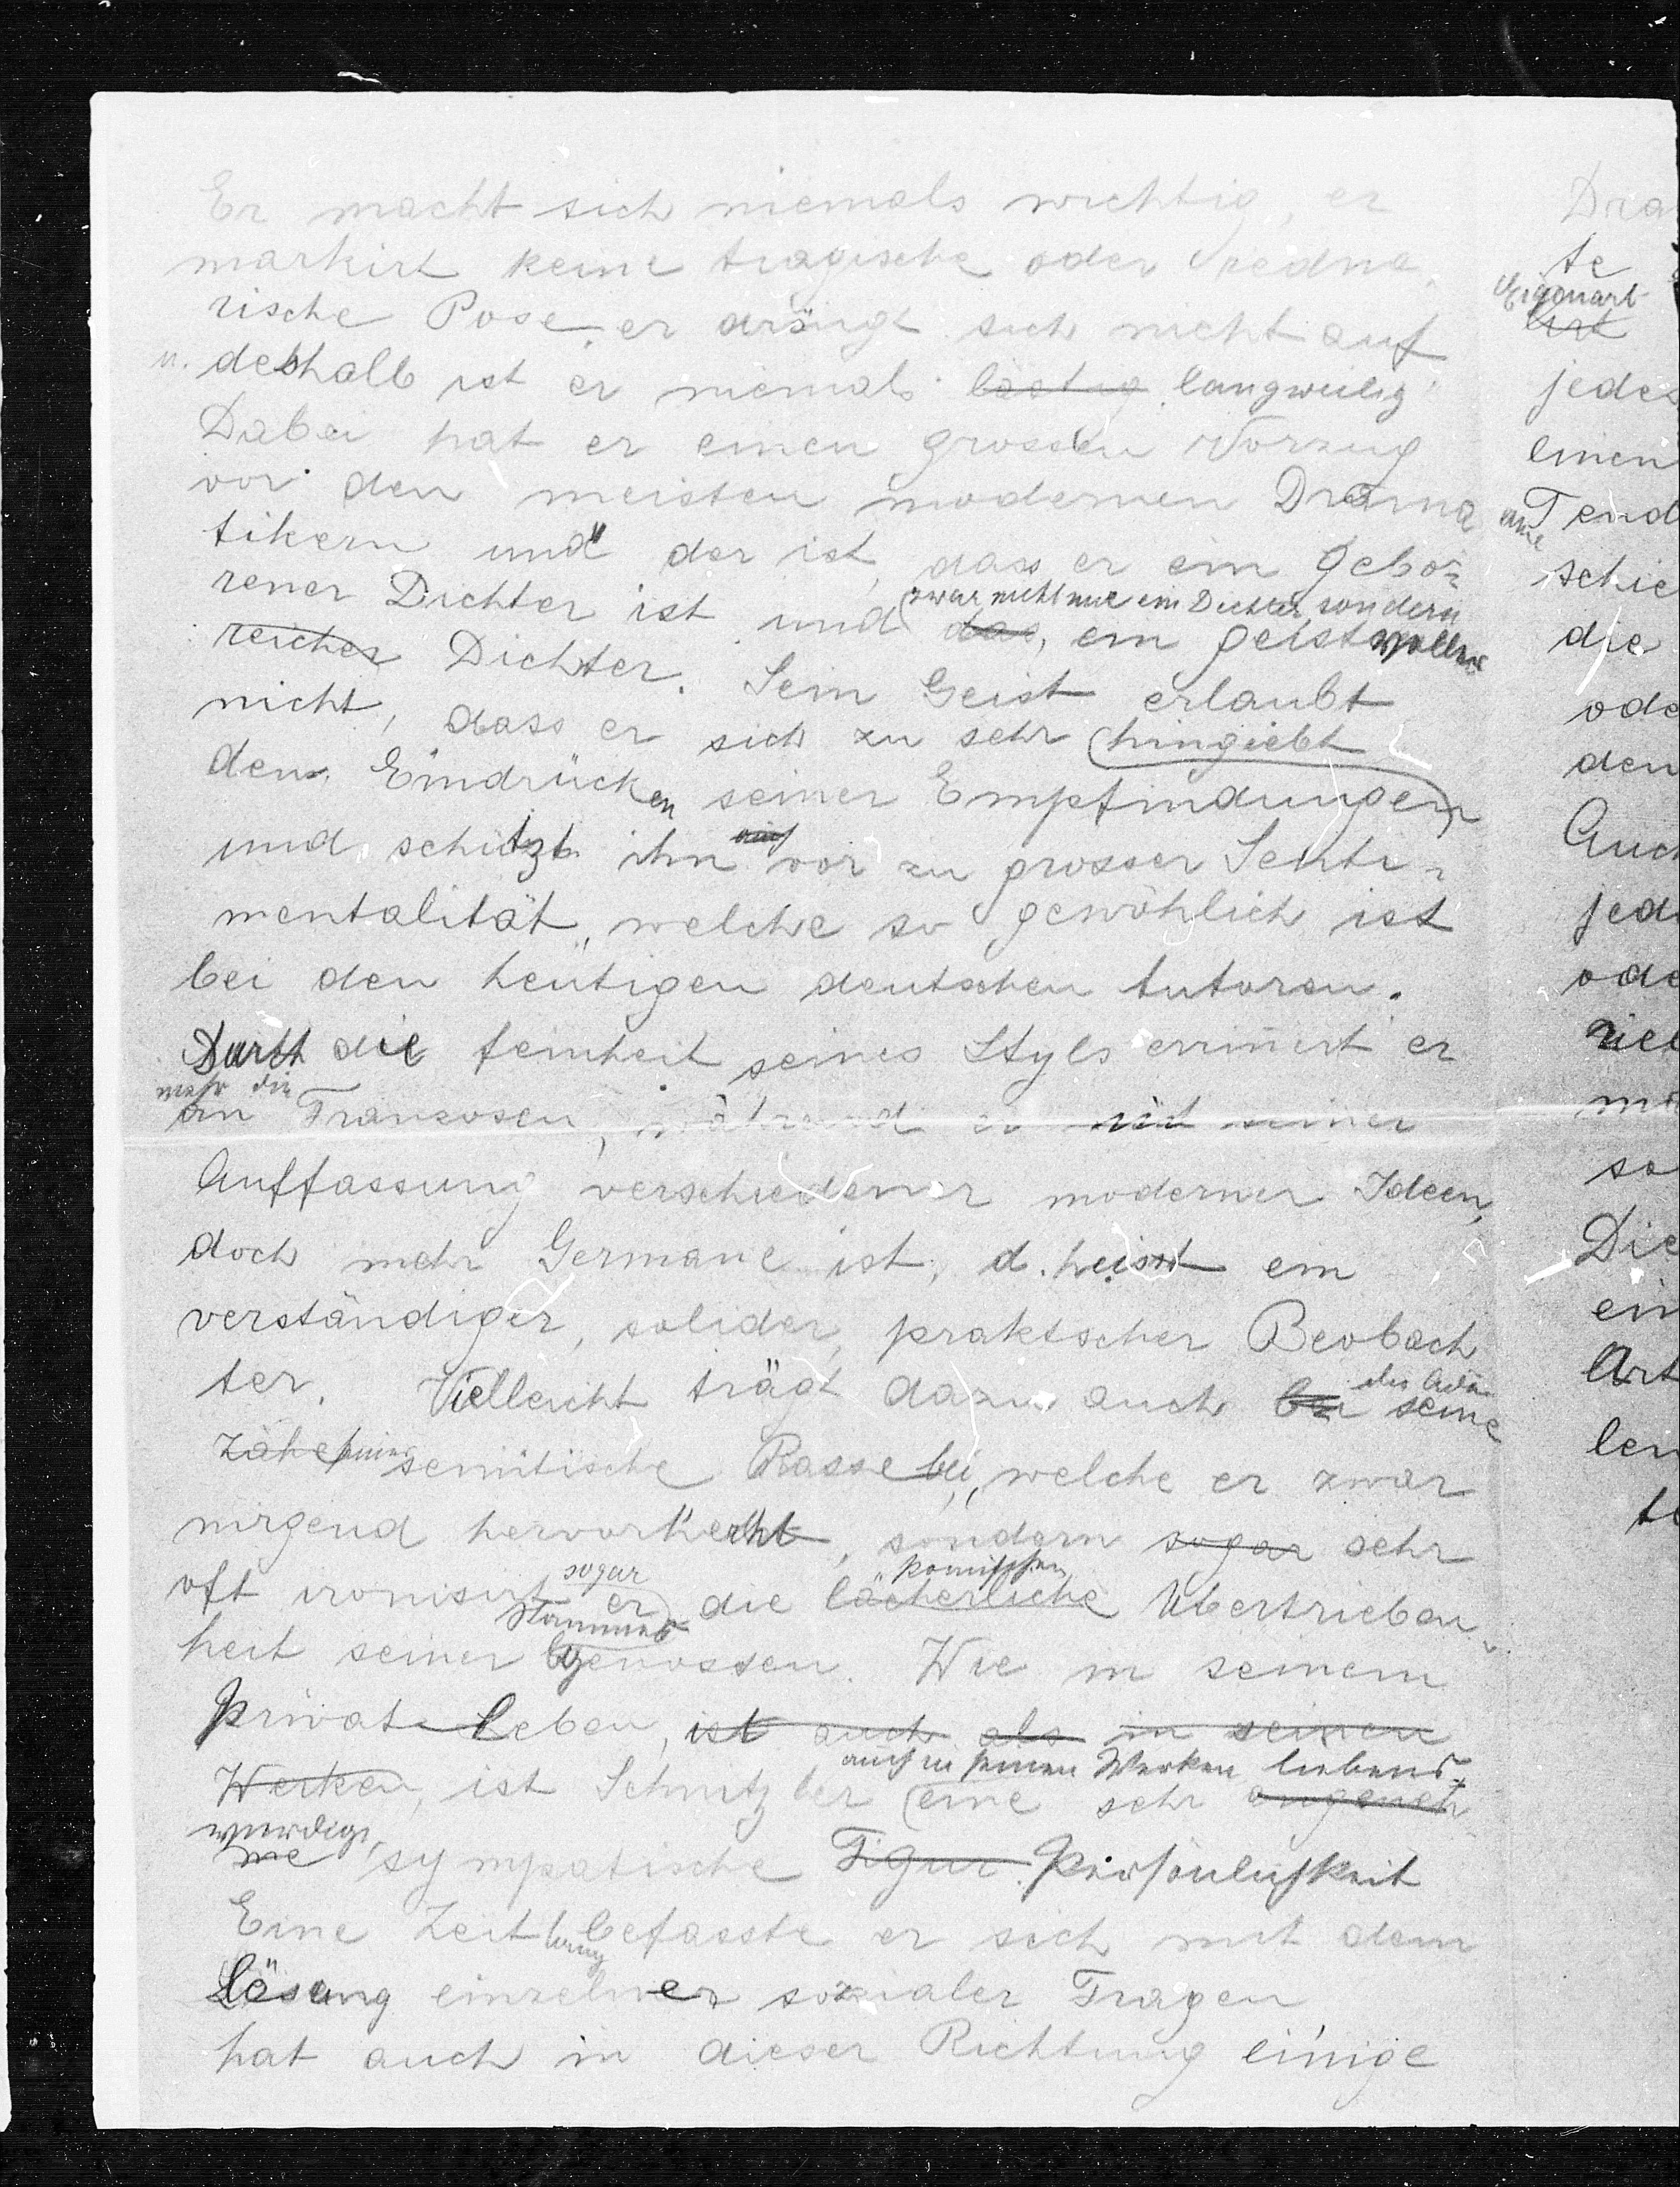 Er macht sich niemals wichtig, er
markirt keine tragische oder redne-
rische Pose, er drängt sich nicht auf
u. deshalb ist er niemals lästig langweilig.
Dabei hat er einen grossen Vorzug
vor den meisten modernen Drama
tikern und der ist, dass er ein gebo-
zwar nicht nur ein Dichter sondern
rener Dichter ist und das, ein geistvoller
reicher Dichter. Sein Geist erlaubt
nicht, dass er sich zu sehr hingiebt
den Eindrücken seiner Empfindungen
und schützt ihn auch vor zu grosser Senti-
mentalität, welche so gewöhnlich ist
bei den heutigen deutschen Autoren.
Durch die feinheit seines Styls erinnert er
mehr die
an Franzosen, während er mit seiner
Auffassung verschiedener moderner Ideen,
doch mehr Germane ist, d. heisst ein
verständiger, solider, praktscher Beobach
ter. Vielleicht trägt dazu auch bei seine
zähe seine semitische Rasse bei, welche er zwar
nirgend hervorkehrt, sondern sogar sehr
sogar komischen
oft ironisirt er die lächerliche Übertrieben-
Stammes
heit seiner genossen. Wie in seinem
Privat-Leben, ist auch als in seinen
auch in seinen Werken liebens-
Werken, ist Schnitzler eine sehr angeneh
würdige,
me sympatische Figur. Persönlichkeit
Eine Zeit lang befasste er sich mit dem
Lösung einzelner sozialer Fragen
hat auch in dieser Richtung einige
Dra
te
Eigenart
Art
jedes
einen
Tend
schie
die
ode
den
Auch
jede
ode
viel
mi
so
Die
ein
Art
len
te